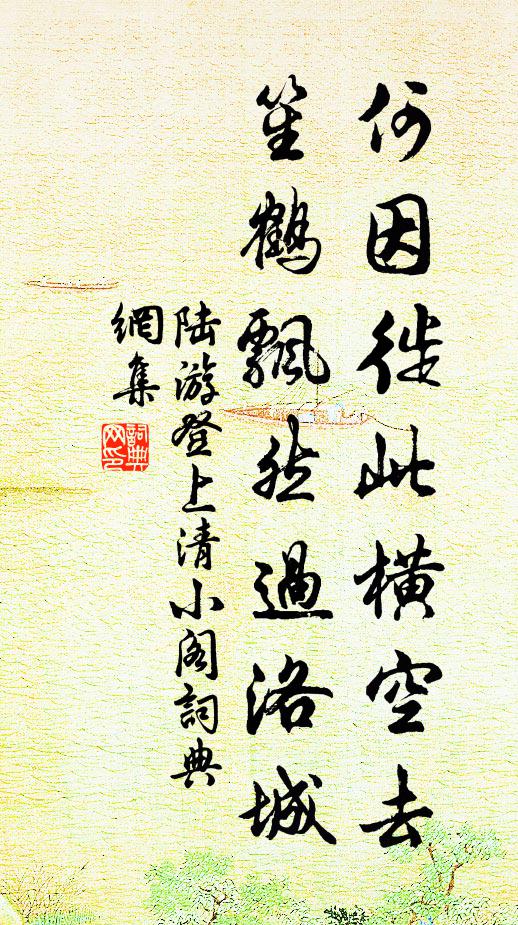 何因從此橫空去
笙鶴飄然過洛城
陸游登上清小閣詞典
網集
詞典
網印